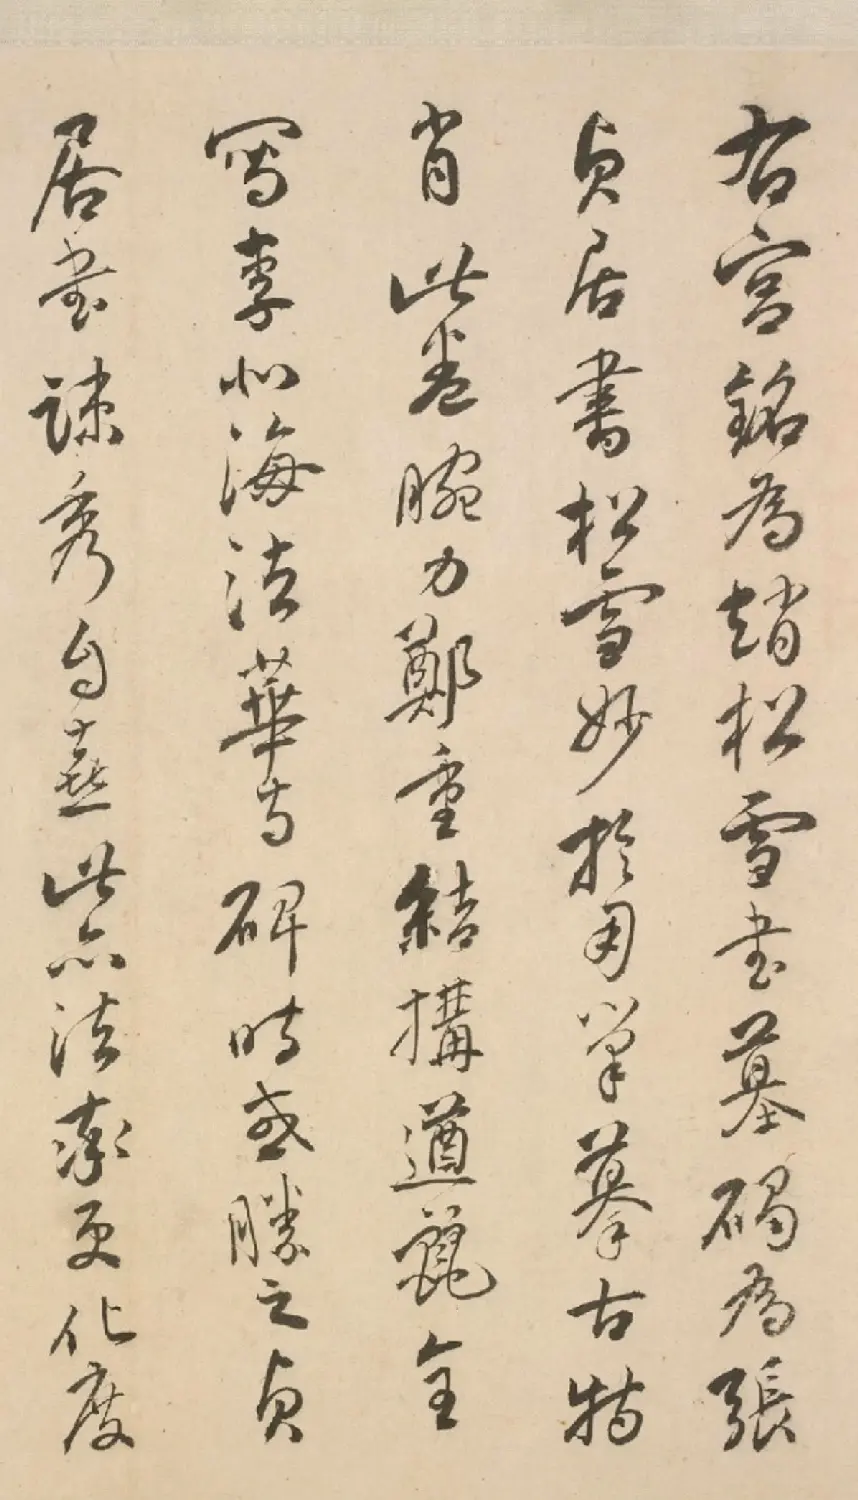 右宮銘為趙松雪書墓碣為張
貞居書松雪妙於用筆摹古特
肖此卷腕力鄭重結構遒麗全
写李北海法華寺碑時或勝之貞
居書疎秀自喜此亦法率更化度